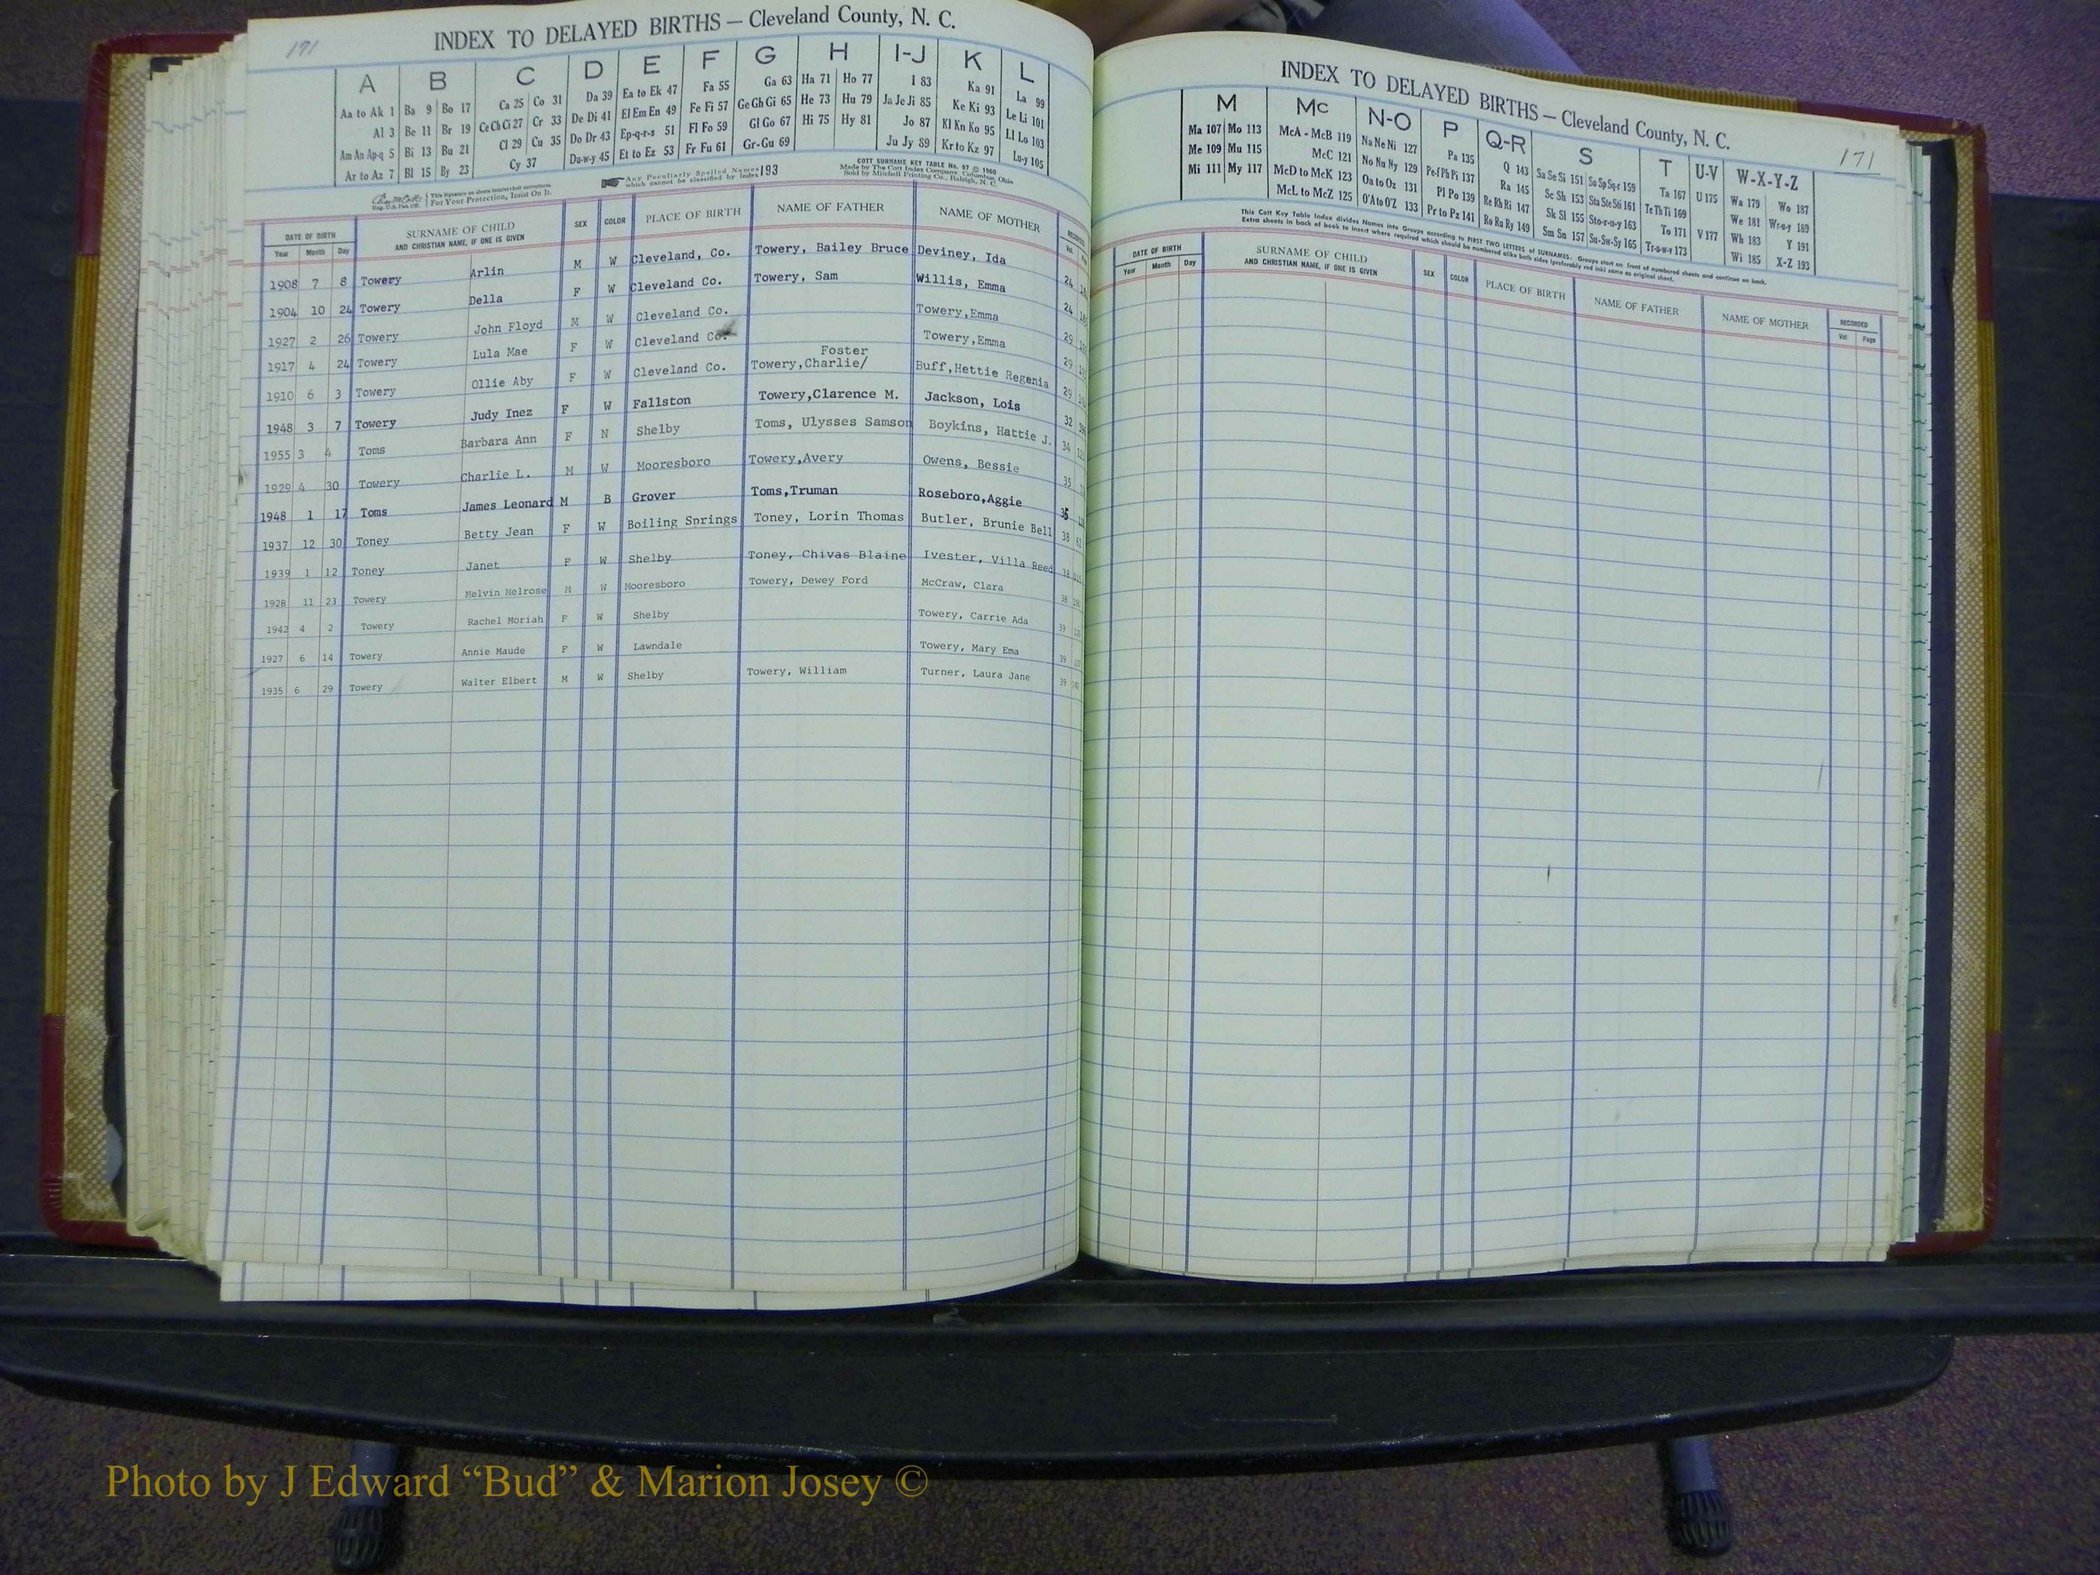 171
INDEX TO DELAYED BIRTHS — Cleveland County, N. C.
A B C D E F G H I-J K L
Aa to Ak 1 Ba 9 Bo 17 Ca 25 Co 31 Da 39 Ea to Ek 47 Fa 55 Ga 63 Ha 71 Ho 77 I 83 Ka 91 La 99
Al 3 Be 11 Br 19 Ce Ch Ci 27 Cr 33 De Di 41 El Em En 49 Fe Fi 57 Ge Gh Gi 65 He 73 Hu 79 Ja Je Ji 85 Ke Ki 93 Le Li 101
Am An Ap-q 5 Bi 13 Bu 21 Cl 29 Cu 35 Do Dr 43 Ep-q-r-s 51 Fl Fo 59 Gl Go 67 Hi 75 Hy 81 Jo 87 Kl Kn Ko 95 Ll Lo 103
Ar to Az 7 Bl 15 By 23 Cy 37 Du-w-y 45 Et to Ez 53 Fr Fu 61 Gr-Gu 69 Ju Jy 89 Kr to Kz 97 Lu-y 105
This Signature on sheets insures their correctness.
For Your Protection, Insist On It.
Any Peculiarly Spelled Names which cannot be classified by Index 193
COTT SURNAME KEY TABLE No. 97 © 1960
Made by The Cott Index Company, Columbus, Ohio
Sold by Mitchell Printing Co., Raleigh, N. C.
DATE OF BIRTH SURNAME OF CHILD AND CHRISTIAN NAME, IF ONE IS GIVEN SEX COLOR PLACE OF BIRTH NAME OF FATHER NAME OF MOTHER
Year Month Day
1908 7 8 Towery Arlin M W Cleveland, Co. Towery, Bailey Bruce Deviney, Ida 24
1904 10 24 Towery Della F W Cleveland Co. Towery, Sam Willis, Emma 24
1927 2 26 Towery John Floyd M W Cleveland Co. Towery,Emma 29
1917 4 24 Towery Lula Mae F W Cleveland Co. Towery,Emma 29
1910 6 3 Towery Ollie Aby F W Cleveland Co. Towery,Charlie/ Foster Buff,Hettie Regenia 29
1948 3 7 Towery Judy Inez F W Fallston Towery,Clarence M. Jackson, Lois 32
1955 3 4 Toms Barbara Ann F N Shelby Toms, Ulysses Samson Boykins, Hattie J. 34
1929 4 30 Towery Charlie L. M W Mooresboro Towery,Avery Owens, Bessie 35
1948 1 17 Toms James Leonard M B Grover Toms,Truman Roseboro,Aggie 35
1937 12 30 Toney Betty Jean F W Boiling Springs Toney, Lorin Thomas Butler, Brunie Bell 38
1939 1 12 Toney Janet F W Shelby Toney, Chivas Blaine Ivester, Villa Reed 38
1928 11 23 Towery Melvin Melrose M W Mooresboro Towery, Dewey Ford McCraw, Clara 38
1942 4 2 Towery Rachel Moriah F W Shelby Towery, Carrie Ada 39
1927 6 14 Towery Annie Maude F W Lawndale Towery, Mary Ema 39
1935 6 29 Towery Walter Elbert M W Shelby Towery, William Turner, Laura Jane 39
INDEX TO DELAYED BIRTHS — Cleveland County, N. C.
171
M Mc N-O P Q-R S T U-V W-X-Y-Z
Ma 107 Mo 113 McA - McB 119 Na Ne Ni 127 Pa 135 Q 143 Sa Se Si 151 So Sp Sq-r 159 Ta 167 U 175 Wa 179 Wo 187
Me 109 Mu 115 McC 121 No Nu Ny 129 Pe-f Ph Pi 137 Ra 145 Sc Sh 153 Sta Ste Sti 161 Te Th Ti 169 We 181 Wr-u-y 189
Mi 111 My 117 McD to McK 123 Oa to Oz 131 Pl Po 139 Re Rh Ri 147 Sk Sl 155 Sto-r-u-y 163 To 171 V 177 Wh 183 Y 191
McL to McZ 125 O'A to O'Z 133 Pr to Pz 141 Ro Ru Ry 149 Sm Sn 157 Su-Sw-Sy 165 Tr-u-w-y 173 Wi 185 X-Z 193
This Cott Key Table Index divides Names into Groups according to FIRST TWO LETTERS of SURNAMES. Groups start on front of numbered sheets and continue on back.
Extra sheets in back of book to insert where required which should be numbered alike both sides (preferably red ink) same as original sheet.
DATE OF BIRTH SURNAME OF CHILD AND CHRISTIAN NAME, IF ONE IS GIVEN SEX COLOR PLACE OF BIRTH NAME OF FATHER NAME OF MOTHER RECORDED
Year Month Day Vol. Page
Photo by J Edward “Bud” & Marion Josey ©